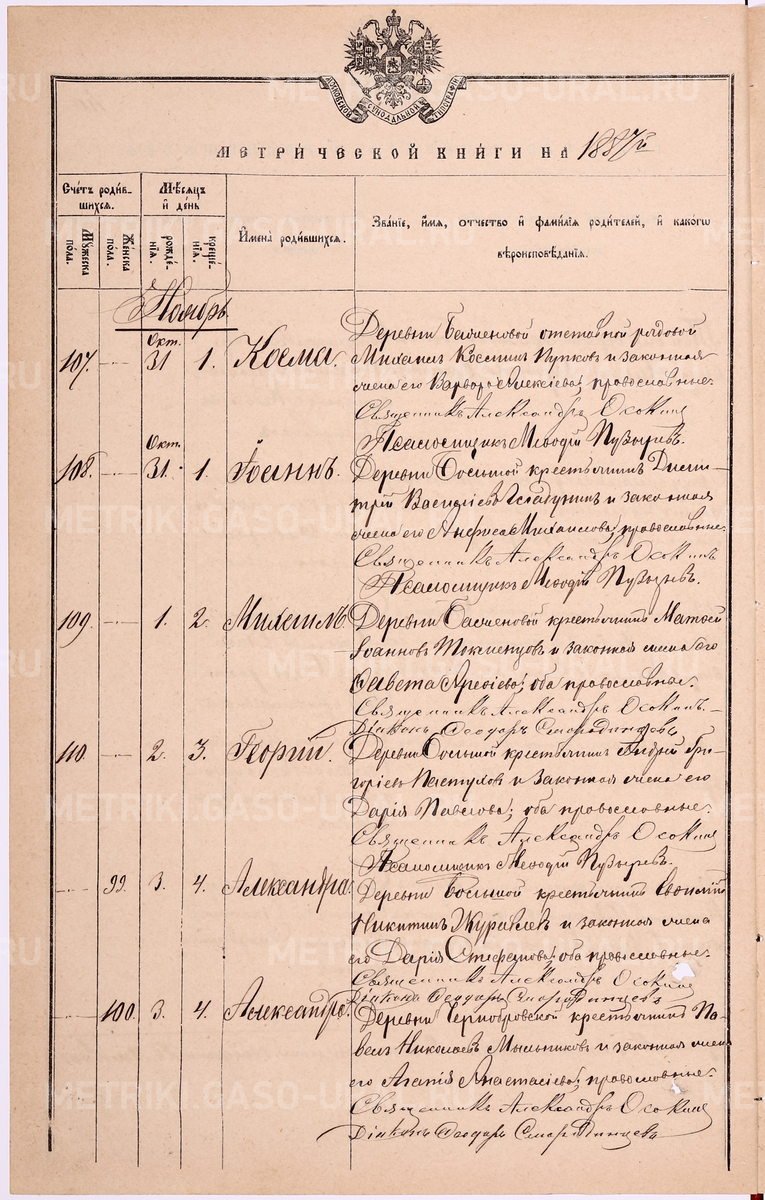 МОСКОВСКОЙ СѴНОДАЛЬНОЙ ТИПОГРАФІИ
МЕТРИ́ЧЕСКОЙ КНИ́ГИ НА 1887й
Сче́тъ роди́в-
шихся.
Мѣ́сяцъ
и҆ де́нь
И҆мена̀ роди́вшихся.
Зва́ніе, и҆́мя, о҆́тчество и҆ фами́лія роди́телей, и҆ како́гѡ
вѣроисповѣ́данія.
Мꙋ́жеска
пола.
Же́нска
пола.
рожде́-
нія.
креще́-
нія.
Ноябрь.
Деревни отставной рядовой
107. Окт. 31 1. Косма.
Михаил Космин и законная
жена его Варвара Алексіева; православные.
Священникъ Александръ Осокинъ
Псаломщикъ Меѳодій Пузыревъ.
108. Окт. 31. 1. Іоаннъ.
Деревни Большой крестьянинъ Дими-
трій Василіевъ и законная
жена его Анфиса Михаилова; православные.
Священникъ Александръ Осокинъ
Псаломщикъ Меѳодій Пузыревъ.
109. 1. 2. Михаилъ
Деревни крестьянинъ Матѳей
Іоанновъ и законная жена его
оба православные.
Священникъ Александръ Осокинъ.
Діаконъ Ѳеодоръ Смородинцевъ
110. 2. 3. Георгій.
Деревни Большой крестьянинъ Гри-
горіевъ Пастуховъ и законная жена его
Дарія Павлова; оба православные.
Священникъ Александръ Осокинъ
Псаломщикъ Меѳодій Пузыревъ.
99. 3. 4. Александра.
Деревни Большой крестьянинъ Евѳимій
Никитинъ Журавлевъ и законная жена
его Дарія Стефанова; оба православные.
Священникъ Александръ Осокинъ
Діаконъ Ѳеодоръ Смородинцевъ
100. 3. 4. Александра.
Деревни Чернобровской крестьянинъ Па-
велъ Николаевъ Мыльниковъ и законная жена
его Агапія Анастасіева; православные.
Священникъ Александръ Осокинъ
Діаконъ Ѳеодоръ Смородинцевъ
METRIKI.GASO-URAL.RU